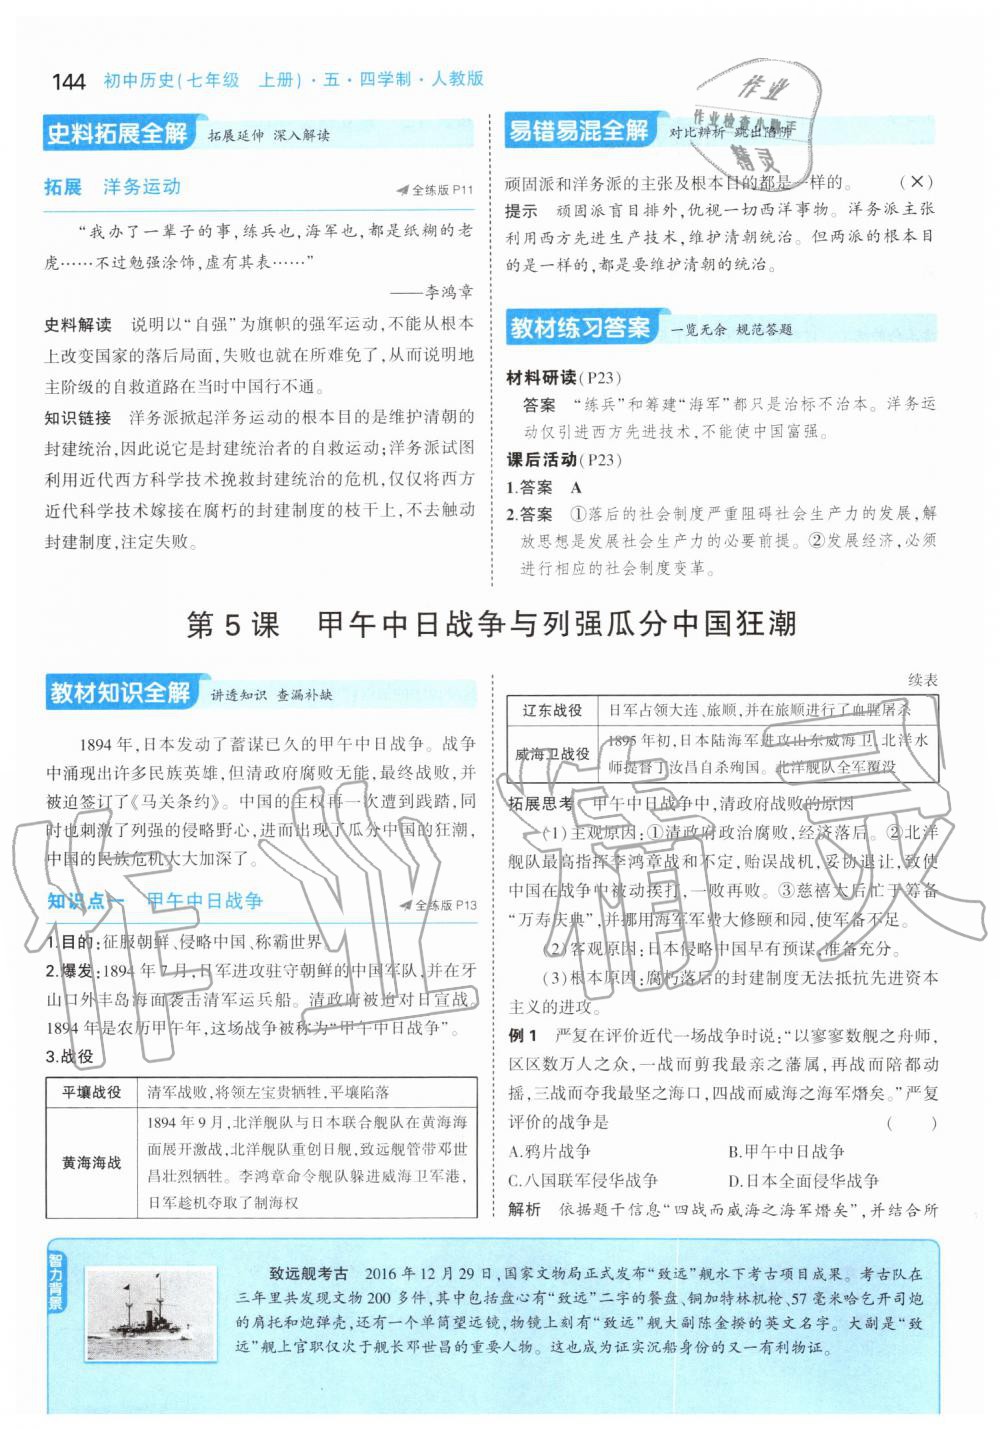 144 初中历史(七年级 上册)·五·四学制·人教版
史料拓展全解 拓展延伸 深入解读
拓展 洋务运动 全练版 P11
“我办了一辈子的事,练兵也,海军也,都是纸糊的老
虎……不过勉强涂饰,虚有其表……”
——李鸿章
史料解读 说明以“自强”为旗帜的强军运动,不能从根本
上改变国家的落后局面,失败也就在所难免了,从而说明地
主阶级的自救道路在当时中国行不通。
知识链接 洋务派掀起洋务运动的根本目的是维护清朝的
封建统治,因此说它是封建统治者的自救运动;洋务派试图
利用近代西方科学技术挽救封建统治的危机,仅仅将西方
近代科学技术嫁接在腐朽的封建制度的枝干上,不去触动
封建制度,注定失败。
易错易混全解 对比辨析 跳出陷阱
顽固派和洋务派的主张及根本目的都是一样的。 (×)
提示 顽固派盲目排外,仇视一切西洋事物。洋务派主张
利用西方先进生产技术,维护清朝统治。但两派的根本目
的是一样的,都是要维护清朝的统治。
教材练习答案 一览无余 规范答题
材料研读(P23)
答案 “练兵”和筹建“海军”都只是治标不治本。洋务运
动仅引进西方先进技术,不能使中国富强。
课后活动(P23)
1.答案 A
2.答案 ①落后的社会制度严重阻碍社会生产力的发展,解
放思想是发展社会生产力的必要前提。②发展经济,必须
进行相应的社会制度变革。
作业
作业检查小助手
精灵
第 5 课 甲午中日战争与列强瓜分中国狂潮
教材知识全解 讲透知识 查漏补缺
1894 年,日本发动了蓄谋已久的甲午中日战争。战争
中涌现出许多民族英雄,但清政府腐败无能,最终战败,并
被迫签订了《马关条约》。中国的主权再一次遭到践踏,同
时也刺激了列强的侵略野心,进而出现了瓜分中国的狂潮,
中国的民族危机大大加深了。
知识点一 甲午中日战争 全练版 P13
1.目的:征服朝鲜、侵略中国、称霸世界
2.爆发:1894 年 7 月,日军进攻驻守朝鲜的中国军队,并在牙
山口外丰岛海面袭击清军运兵船。清政府被迫对日宣战。
1894 年是农历甲午年,这场战争被称为“甲午中日战争”。
3.战役
平壤战役 清军战败,将领左宝贵牺牲,平壤陷落
黄海海战 1894 年 9 月,北洋舰队与日本联合舰队在黄海海
面展开激战,北洋舰队重创日舰,致远舰管带邓世
昌壮烈牺牲。李鸿章命令舰队躲进威海卫军港,
日军趁机夺取了制海权
续表
辽东战役 日军占领大连、旅顺,并在旅顺进行了血腥屠杀
威海卫战役 1895 年初,日本陆海军进攻山东威海卫,北洋水
师提督丁汝昌自杀殉国。北洋舰队全军覆没
拓展思考 甲午中日战争中,清政府战败的原因
(1)主观原因:①清政府政治腐败,经济落后。②北洋
舰队最高指挥李鸿章战和不定,贻误战机,妥协退让,致使
中国在战争中被动挨打,一败再败。③慈禧太后忙于筹备
“万寿庆典”,并挪用海军军费大修颐和园,使军备不足。
(2)客观原因:日本侵略中国早有预谋,准备充分。
(3)根本原因:腐朽落后的封建制度无法抵抗先进资本
主义的进攻。
例 1 严复在评价近代一场战争时说:“以寥寥数舰之舟师,
区区数万人之众,一战而剪我最亲之藩属,再战而陪都动
摇,三战而夺我最坚之海口,四战而威海之海军熸矣。”严复
评价的战争是 ( )
A.鸦片战争 B.甲午中日战争
C.八国联军侵华战争 D.日本全面侵华战争
解析 依据题干信息“四战而威海之海军熸矣”,并结合所
智力背景
致远舰考古 2016 年 12 月 29 日,国家文物局正式发布“致远”舰水下考古项目成果。考古队在
三年里共发现文物 200 多件,其中包括盘心有“致远”二字的餐盘、铜加特林机枪、57 毫米哈乞开司炮
的肩托和炮弹壳,还有一个单筒望远镜,物镜上刻有“致远”舰大副陈金揆的英文名字。大副是“致
远”舰上官职仅次于舰长邓世昌的重要人物。这也成为证实沉船身份的又一有利物证。
作业精灵